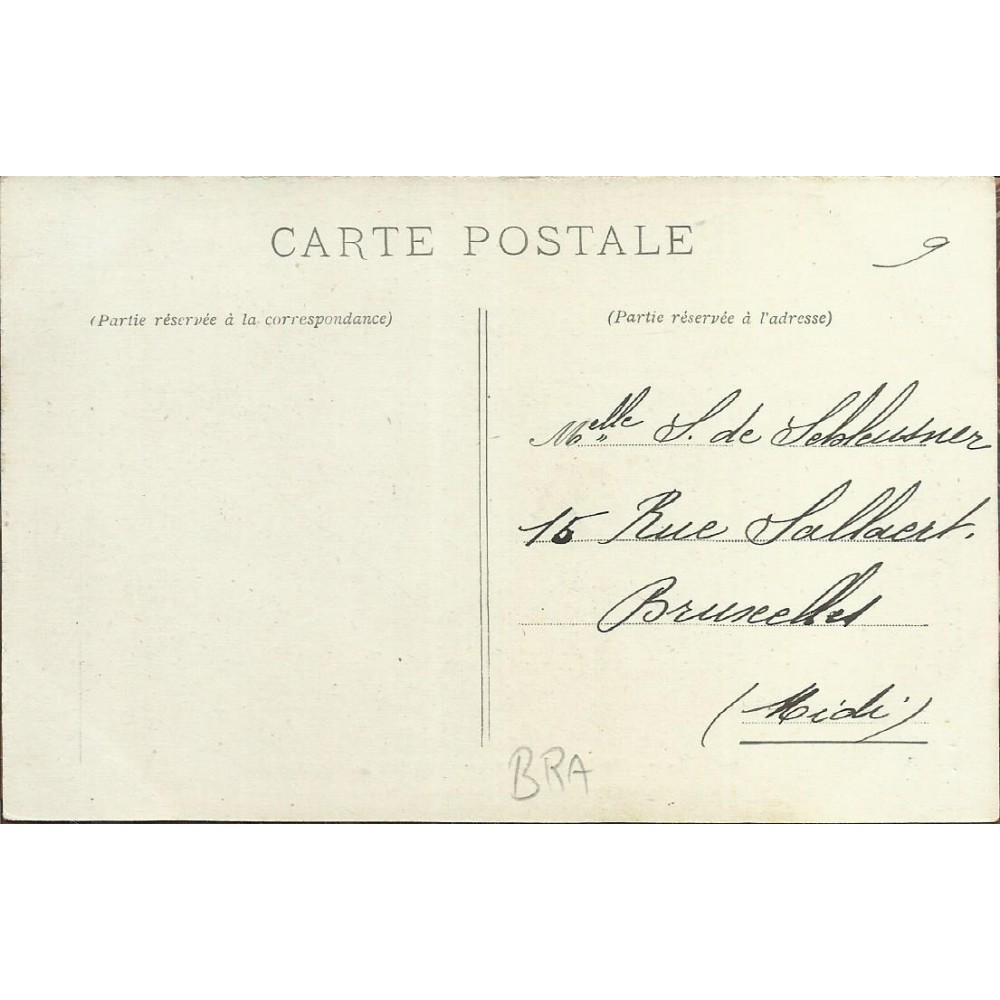 CARTE POSTALE
9
(Partie réservée à la correspondance)
(Partie réservée à l'adresse)
Melle S. de Schleusner
15 Rue Sallaert.
Bruxelles
(Midi)
BRA